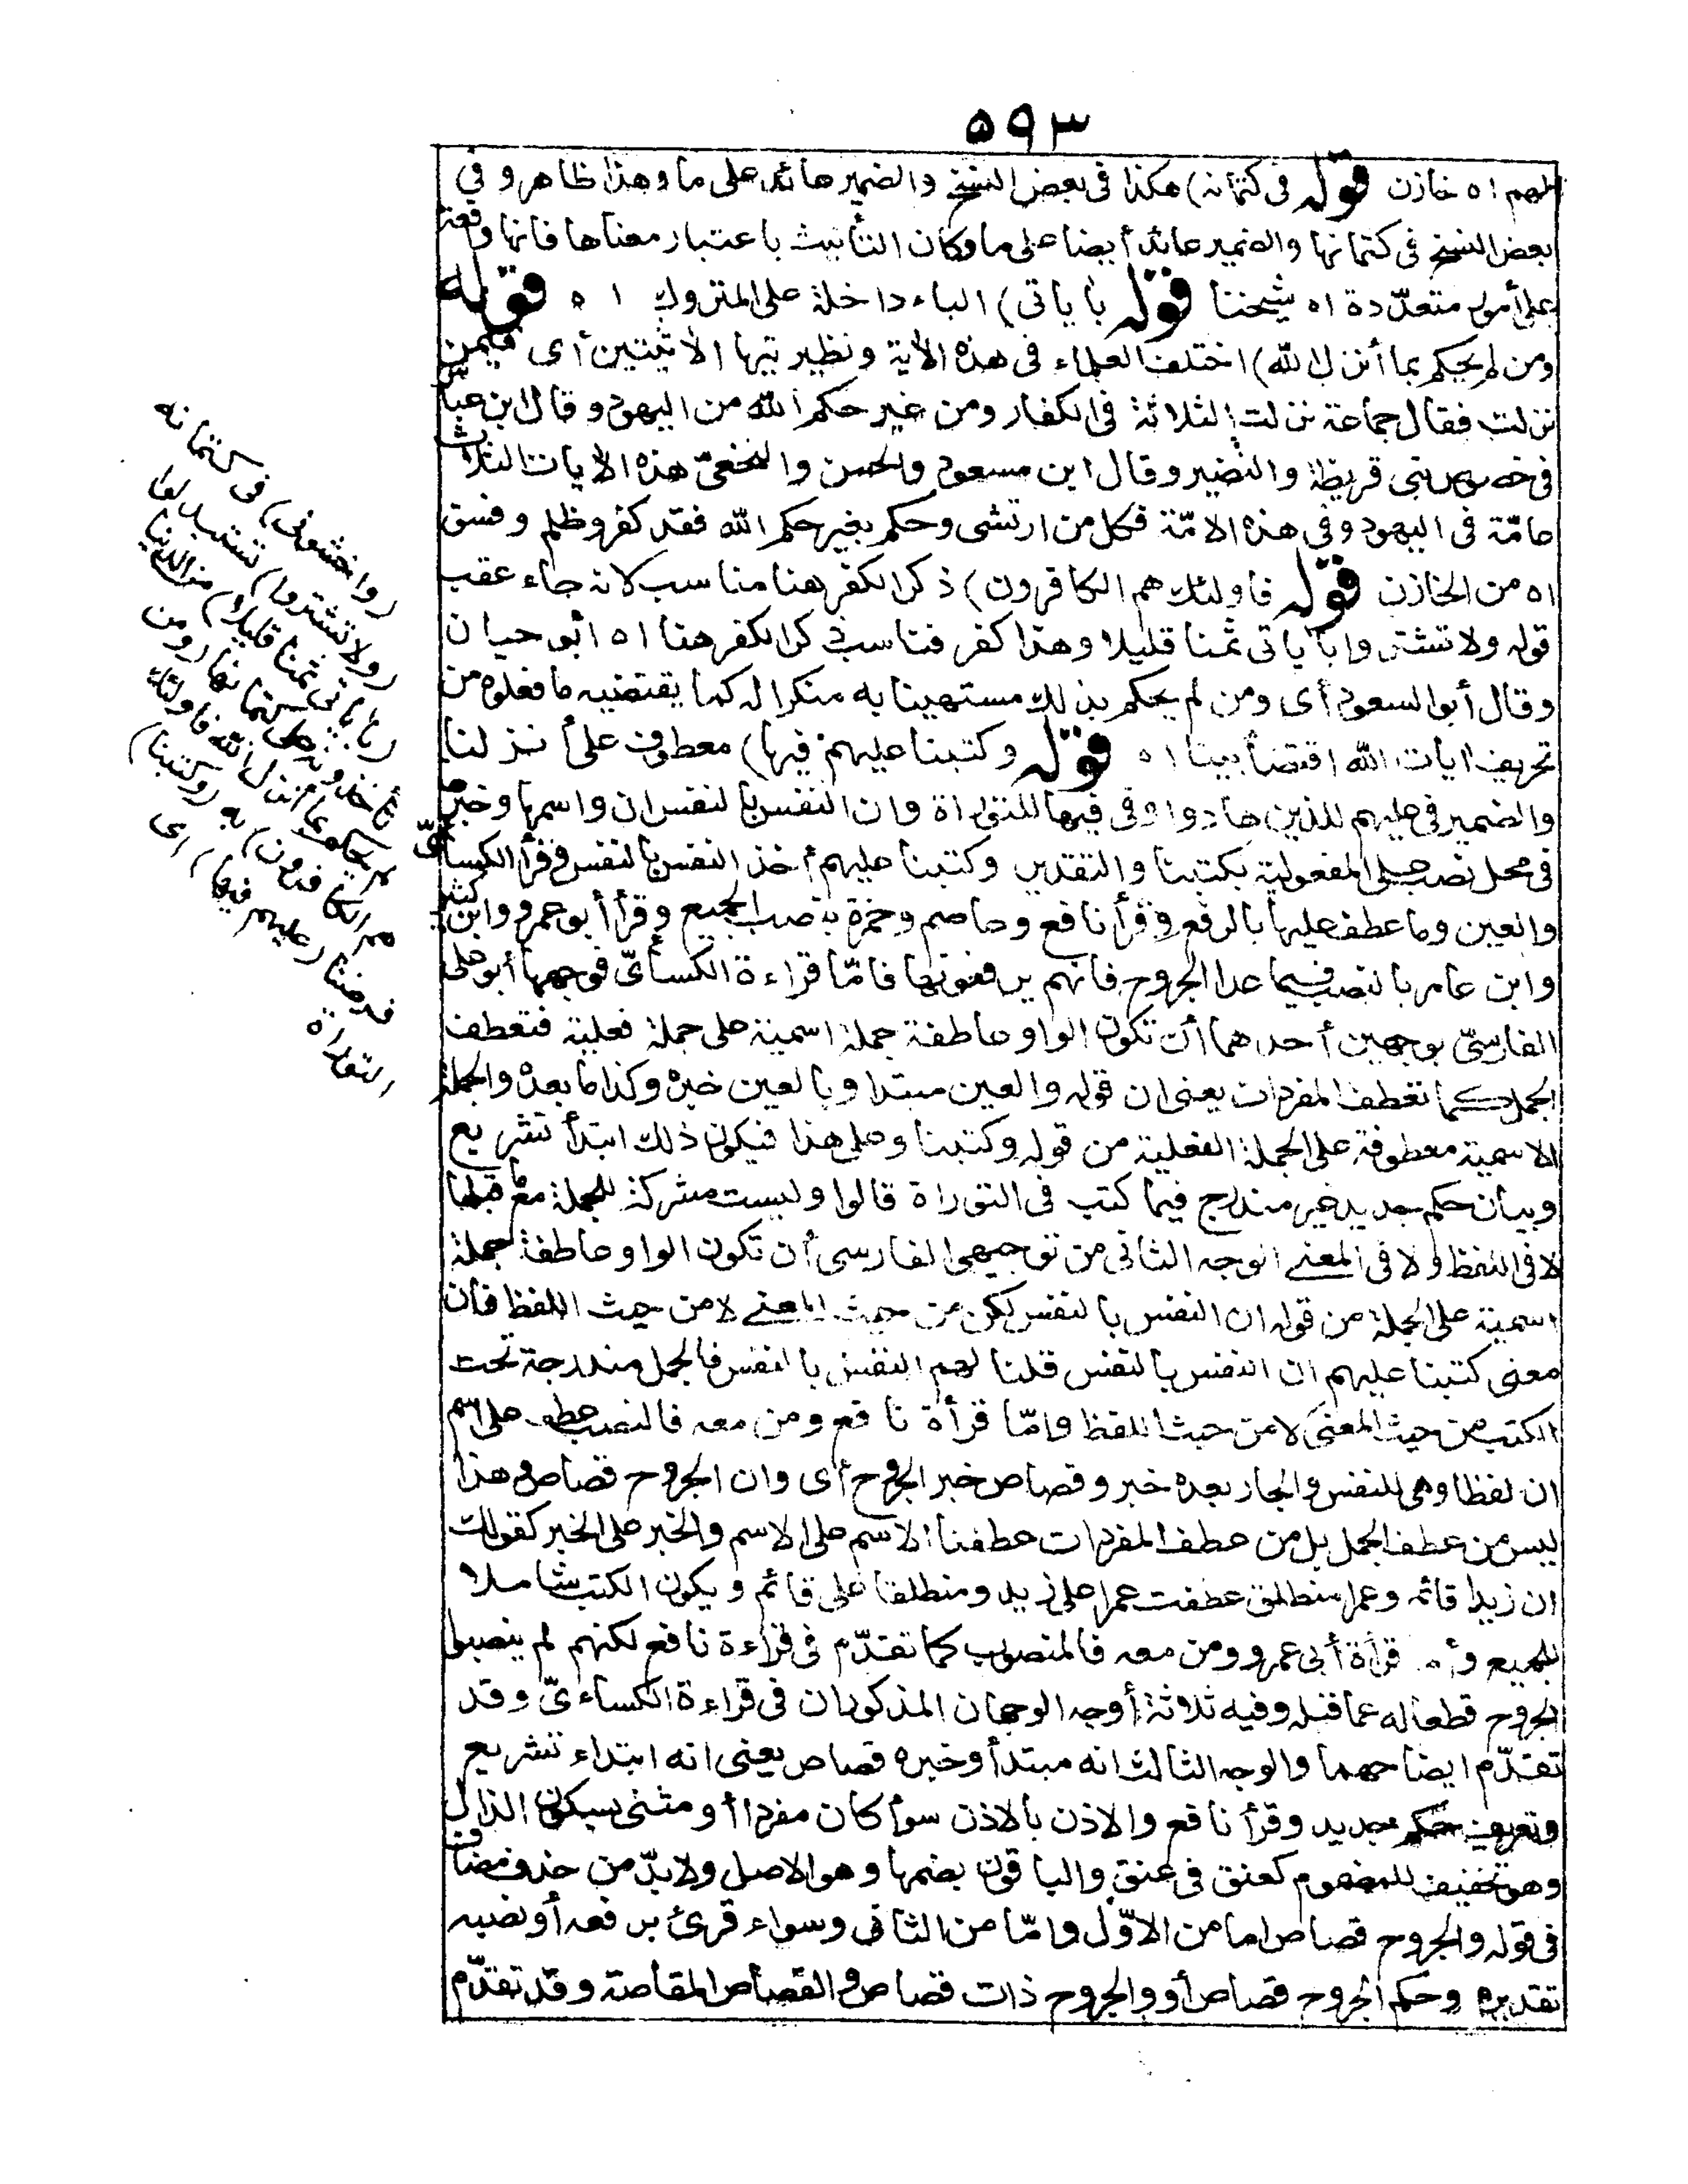 ٥٩٣
لهم اه خازن قوله فى كتمانه) هكذا فى بعض النسخ والضمير عائد على ما وهذا ظاهر و في
بعض النسخ فى كتمانها والضمير عائد أيضا على ما وكان التأنيث باعتبار معناها فانها واقعة
على أمور متعدّدة اه شيخنا قوله باياتى) الباء داخلة على المتروك ا ه قوله
ومن لم يحكم بما أنزل الله) اختلف العلماء فى هذه الأية ونظيرتيها الأتيتين أى فيمن
نزلت فقال جماعة نزلت الثلاثة فى الكفار ومن غير حكم الله من اليهود وقال ابن عباس
فى خصوص بنى قريظة والنضير وقال ابن مسعود والحسن والنخعىّ هذه الأيات الثلاث
عامّة فى اليهود وفى هذه الامّة فكل من ارتشى وحكم بغير حكم الله فقد كفر وظلم وفسق
اه من الخازن قوله فاولئك هم الكافرون) ذكر الكفر هنا مناسب لانه جاء عقب
قوله ولا تشتروا باياتى ثمنا قليلا وهذا كفر فناسب ذكر الكفر هنا اه ابو حيان
وقال أبو السعود أى ومن لم يحكم بذلك مستهينا به منكرا له كما يقتضيه ما فعلوه من
تحريف ايات الله اقتضأ بينا اه قوله وكتبنا عليهم فيها) معطوف على أنزلنا
والضمير فى عليهم للذين هادوا وفى فيها للتوراة وان النفس بالنفس ان واسمها وخبرها
فى محل نصب على المفعولية بكتبنا والتقدير وكتبنا عليهم أخذ النفس بالنفس وقرأ الكسائىّ
والعين وما عطف عليها بالرفع وقرأ نافع وعاصم وحمزة بنصب الجميع وقرأ أبو عمرو وابن كثير
وابن عامر بالنصب فيما عدا الجروح فانهم يرفعونها فامّا قراءة الكسأىّ فوجهها أبو على
الفارسىّ بوجهين أحدهما أن تكون الواو عاطفة جملة اسمية على جملة فعلية فتعطف
الجمل كما تعطف المفردات يعنى ان قوله والعين مبتدا وبالعين خبره وكذا ما بعده والجملة
الاسمية معطوفة على الجملة الفعلية من قوله وكتبنا وعلى هذا فيكون ذلك ابتدأ تشريع
وبيان حكم جديد غير مندرج فيما كتب فى التوراة قالوا وليست مشركة للجملة مع ما قبلها
لا فى اللفظ ولا فى المعنى الوجه الثانى من توجيهى الفارسى أن تكون الواو عاطفة جملة
اسمية على الجملة من قوله ان النفس بالنفس لكن من حيث المعنى لا من حيث اللفظ فان
معنى كتبنا عليهم ان النفس بالنفس قلنا لهم النفس بالنفس فالجمل مندرجة تحت
الكتب من حيث المعنى لا من حيث اللفظ وامّا قرأة نافع ومن معه فالنصب عطف على اسم
ان لفظا وهى النفس والجار بعده خبر وقصاص خبر الجروح أى وان الجروح قصاص وهذا
ليس من عطف الجمل بل من عطف المفردات عطفنا الاسم على الاسم والخبر على الخبر كقولك
ان زيدا قائم وعمرا منطلق عطفت عمرا على زيد ومنطلقا على قائم ويكون الكتب شاملا
للجميع وأما قرأة أبى عمرو ومن معه فالمنصوب كما تقدّم فى قراءة نافع لكنهم لم ينصبوا
الجروح قطعا له عما قبله وفيه ثلاثة أوجه الوجهان المذكوران فى قراءة الكساءىّ وقد
تقدّم ايضاحهما والوجه الثالث انه مبتدأ وخبره قصاص يعنى انه ابتداء تشريع
وتعريف حكم جديد وقرأ نافع والاذن بالاذن سوأ كان مفردا أو مثنى بسكون الذال
وهو تخفيف للمضموم كعنق فى عنق والباقون بضمها وهو الاصل ولا بدّ من حذف مضاف
فى قوله والجروح قصاص اما من الاوّل وامّا من الثانى وسواء قرئ برفعه أو نصبه
تقديره وحكم الجروح قصاص أو والجروح ذات قصاص والقصاص المقاصة وقد تقدّم
(واخشونى) فى كتمانه
(ولا تشتروا) تستبدلوا
(باياتى ثمنا قليلا) من الدنيا
تأخذونه على كتمانها (ومن
لم يحكم بما أنزل الله فاولئك
هم الكافرون) به (وكتبنا)
فرضنا (عليهم فيها) اى
التوراة